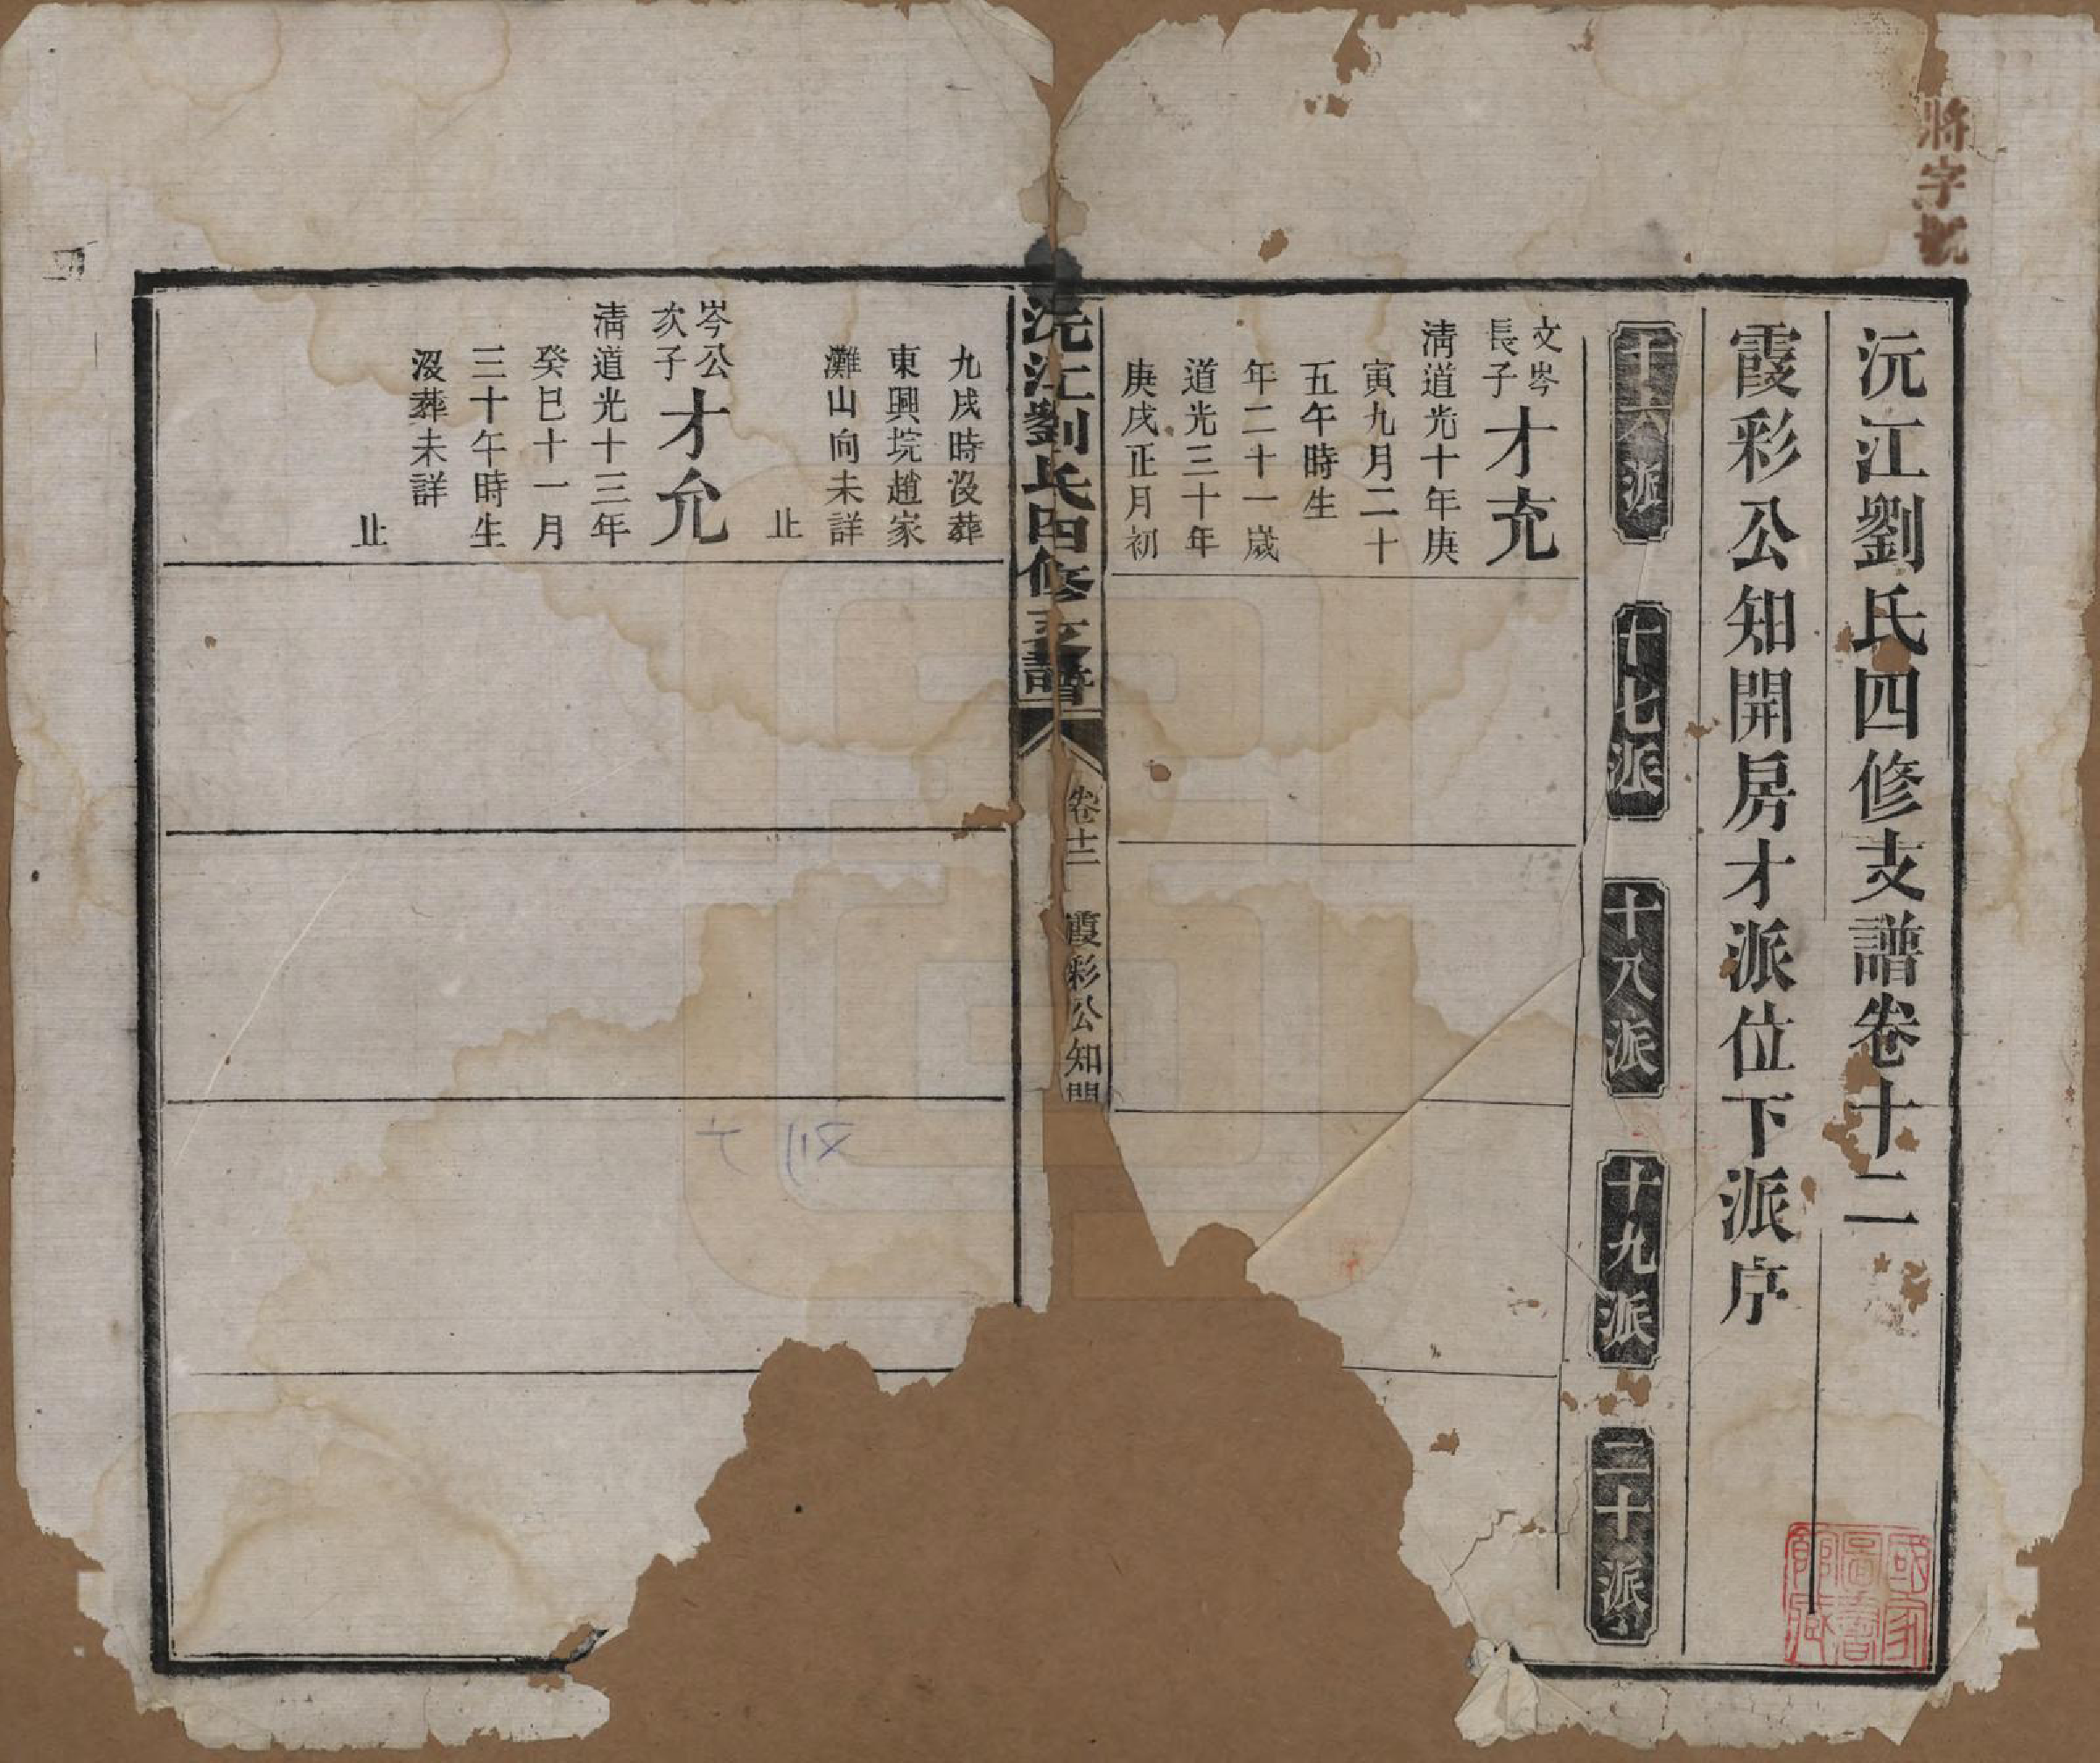 將字號
沅江劉氏四修支譜卷十二
霞彩公知開房才派位下派序
十六派
十七派
十八派
十九派
二十派
文岑
長子
才充
清道光十年庚
寅九月二十
五午時生
年二十一歲
道光三十年
庚戌正月初
沅江劉氏四修支譜
卷十二
霞彩公知開
九戌時沒葬
東興垸趙家
灘山向未詳
止
岑公
次子
才允
清道光十三年
癸巳十一月
三十午時生
沒葬未詳
止
國家
圖書
館藏